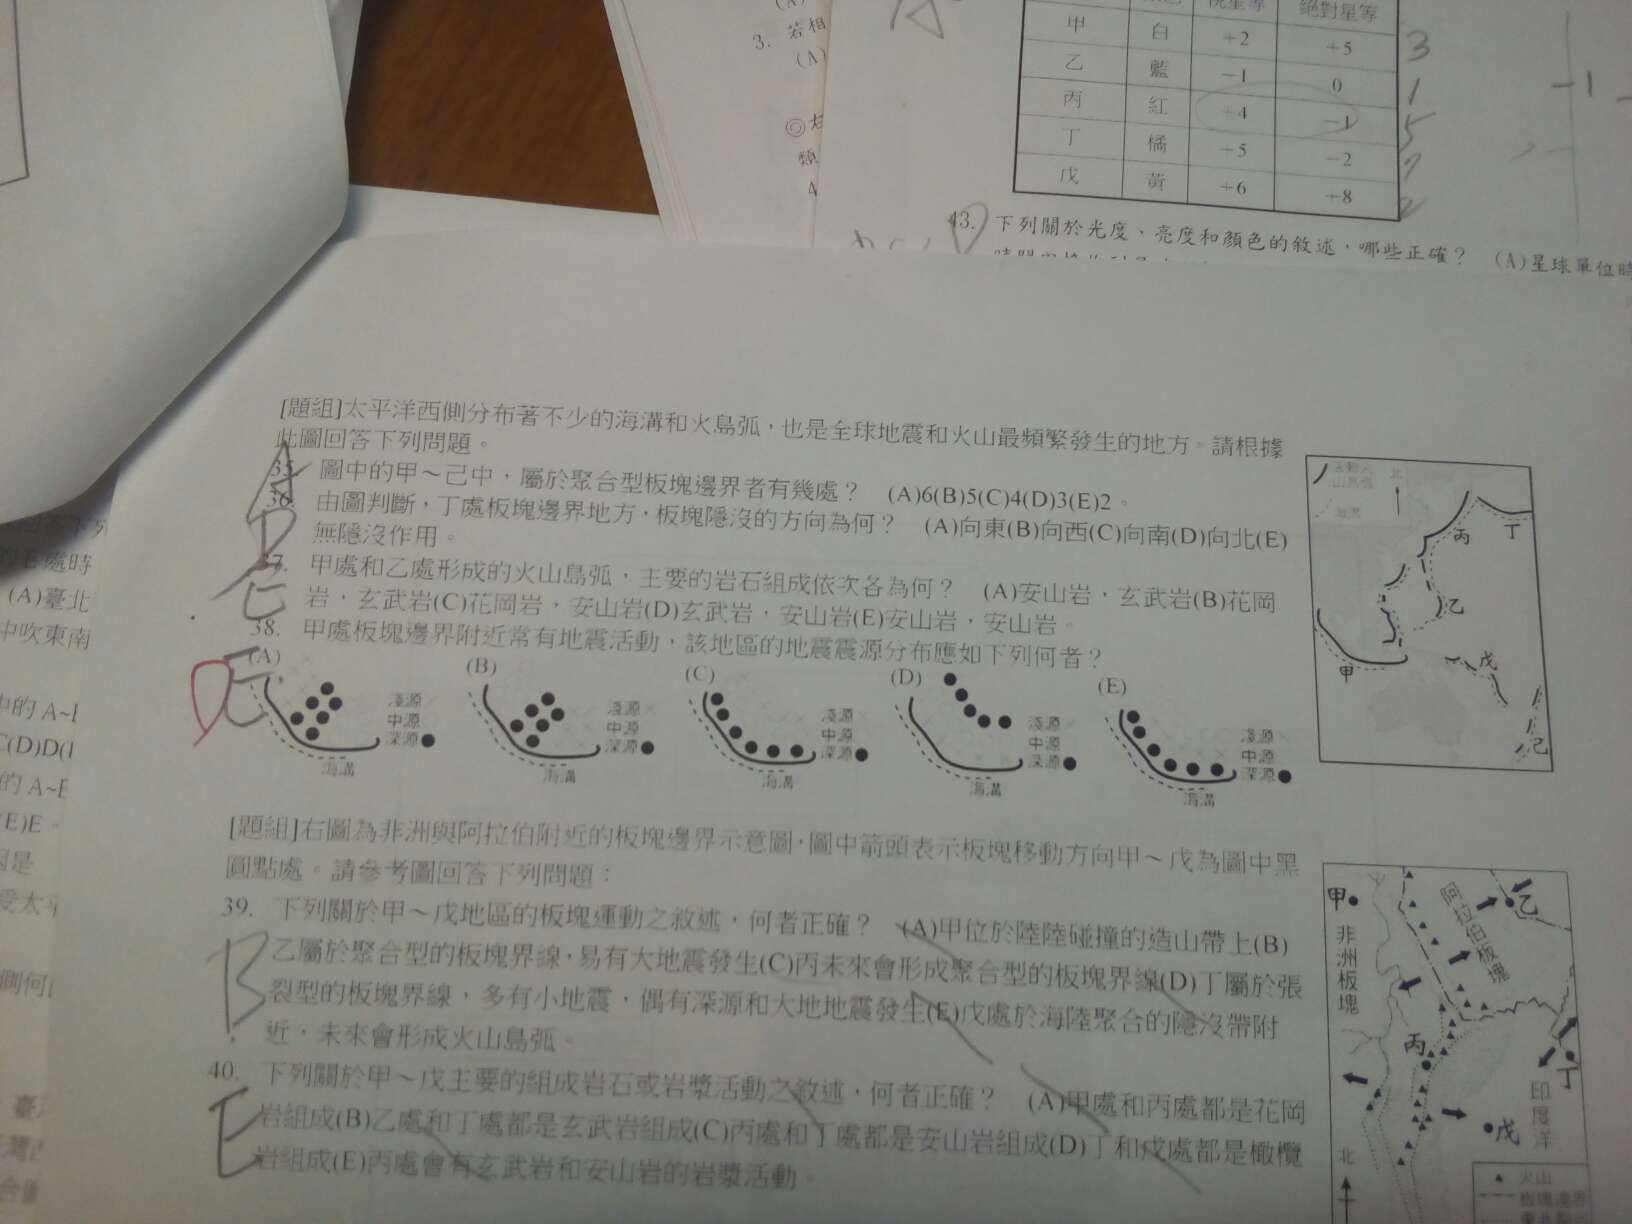 3. 若相
(A)
視星等 絕對星等
甲 白 +2 +5 3
乙 藍 -1 0 1
丙 紅 +4 -1 5
丁 橘 +5 -2 7
戊 黃 +6 +8 2
-1
類
4
43. 下列關於光度、亮度和顏色的敘述,哪些正確? (A)星球單位時
[題組]太平洋西側分布著不少的海溝和火島弧,也是全球地震和火山最頻繁發生的地方。請根據
此圖回答下列問題。
A
35. 圖中的甲~己中,屬於聚合型板塊邊界者有幾處? (A)6(B)5(C)4(D)3(E)2。
D
36. 由圖判斷,丁處板塊邊界地方,板塊隱沒的方向為何? (A)向東(B)向西(C)向南(D)向北(E)
無隱沒作用。
E
37. 甲處和乙處形成的火山島弧,主要的岩石組成依次各為何? (A)安山岩,玄武岩(B)花岡
岩,玄武岩(C)花岡岩,安山岩(D)玄武岩,安山岩(E)安山岩,安山岩。
38. 甲處板塊邊界附近常有地震活動,該地區的地震震源分布應如下列何者?
D E
(A) (B) (C) (D) (E)
淺源 淺源 淺源 淺源 淺源
中源 中源 中源 中源 中源
深源 深源 深源 深源 深源
海溝 海溝 海溝 海溝 海溝
北
丙 丁
乙
甲 戊
己
[題組]右圖為非洲與阿拉伯附近的板塊邊界示意圖,圖中箭頭表示板塊移動方向甲~戊為圖中黑
圓點處。請參考圖回答下列問題:
39. 下列關於甲~戊地區的板塊運動之敘述,何者正確? (A)甲位於陸陸碰撞的造山帶上(B)
乙屬於聚合型的板塊界線,易有大地震發生(C)丙未來會形成聚合型的板塊界線(D)丁屬於張
裂型的板塊界線,多有小地震,偶有深源和大地地震發生(E)戊處於海陸聚合的隱沒帶附
近,未來會形成火山島弧。
B
40. 下列關於甲~戊主要的組成岩石或岩漿活動之敘述,何者正確? (A)甲處和丙處都是花岡
岩組成(B)乙處和丁處都是玄武岩組成(C)丙處和丁處都是安山岩組成(D)丁和戊處都是橄欖
岩組成(E)丙處會有玄武岩和安山岩的岩漿活動。
E
甲
非洲板塊
阿拉伯板塊
乙
丙
丁
印度洋
戊
北
火山
板塊邊界
E處時
(A)臺北
中吹東南
中的 A~I
C(D)D(I
的 A~E
E)E。
因是
受太平
側何
臺